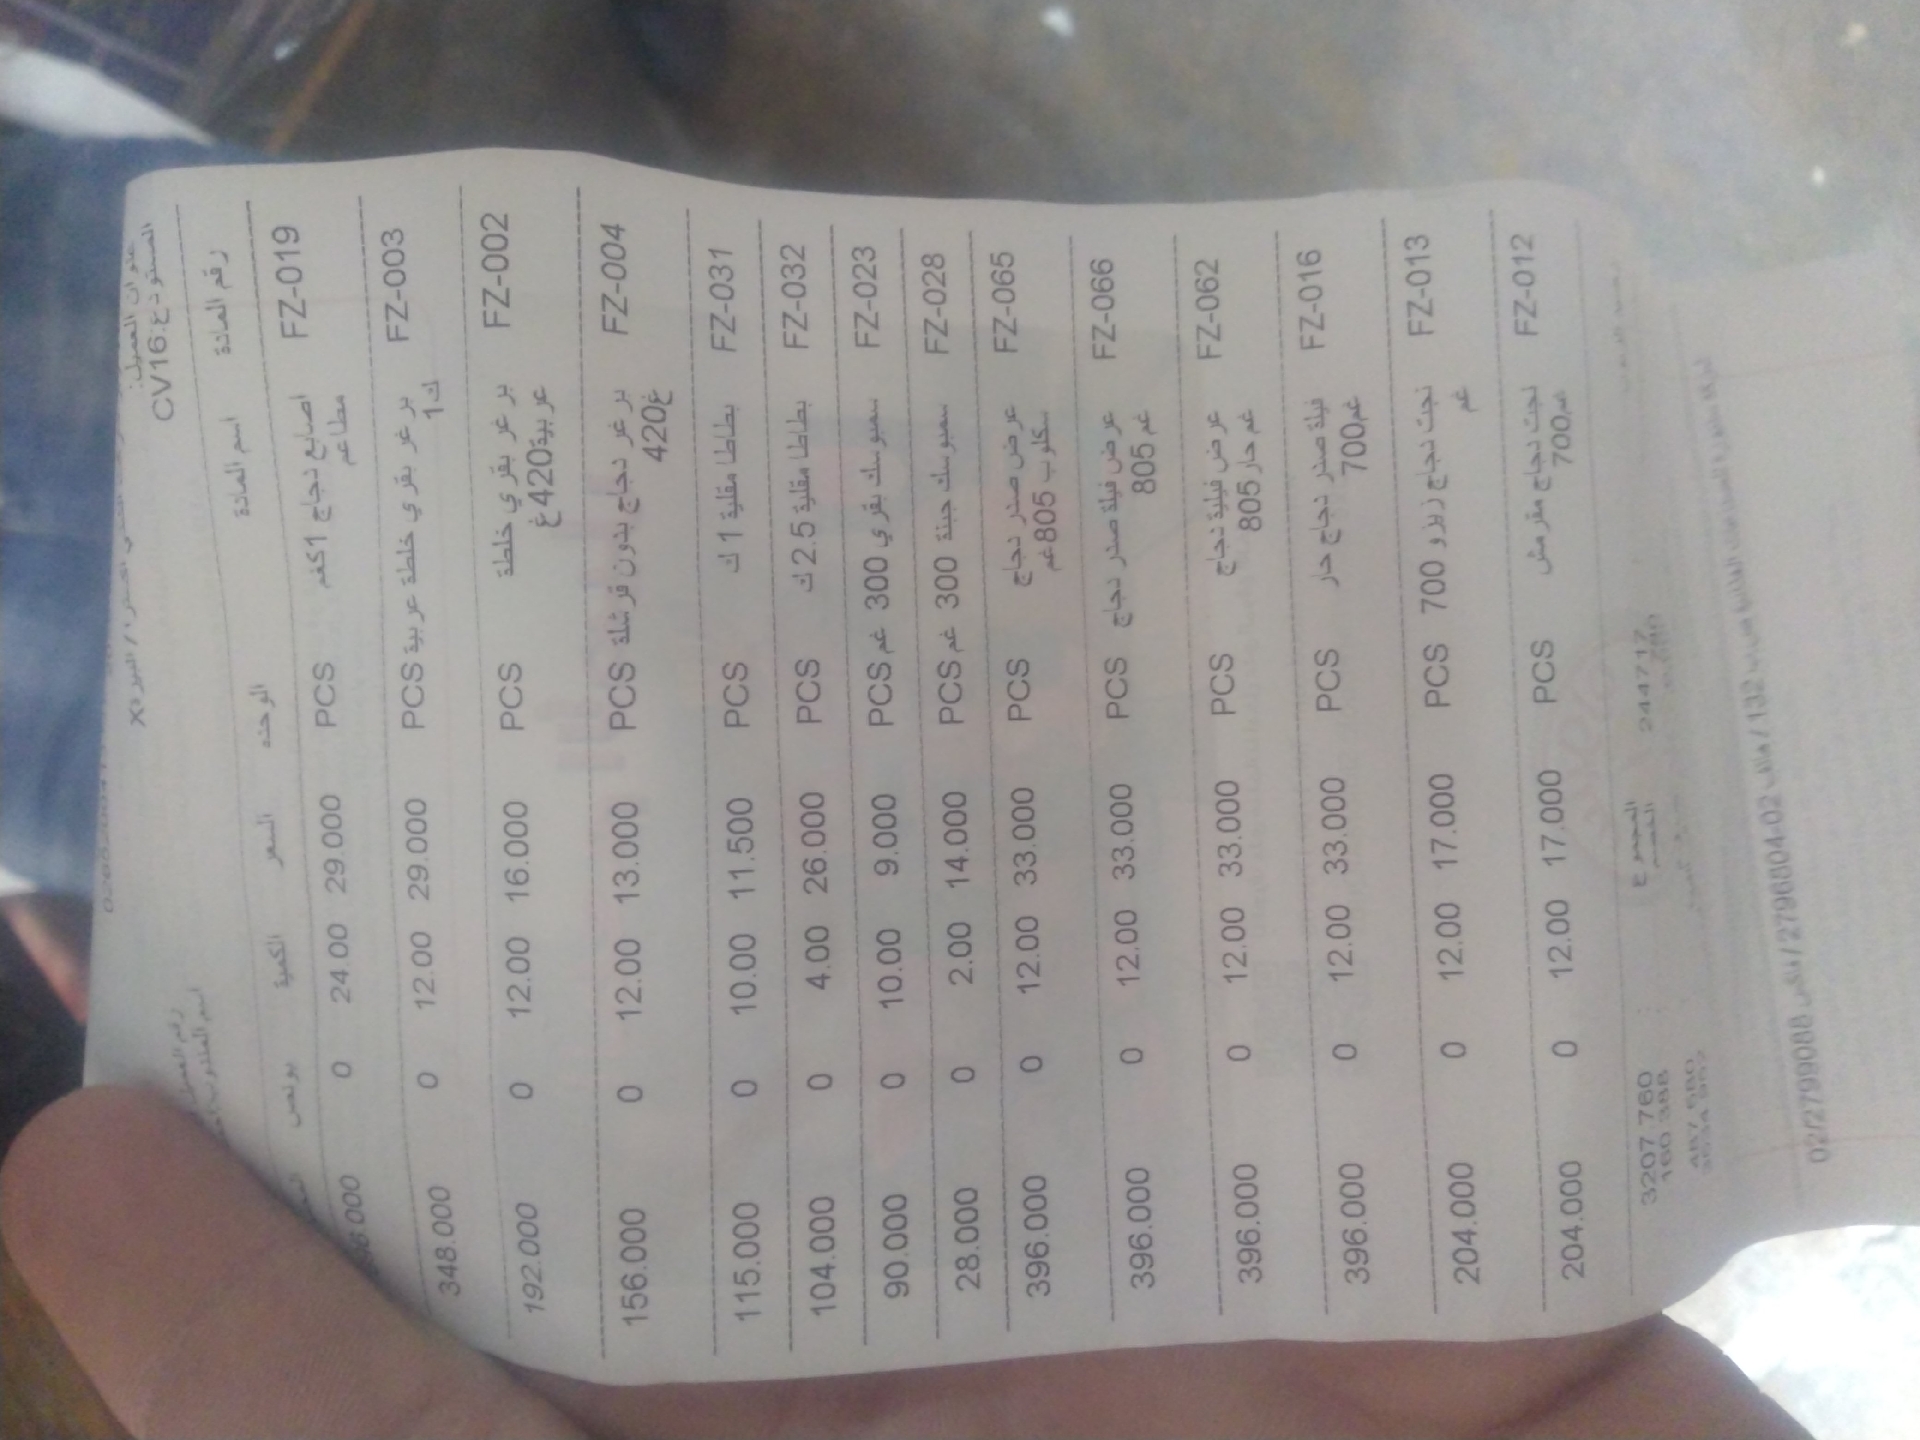 عنوان العميل:
المستودع: CV16
رقم العميل
رقم المادة اسم المادة الوحده السعر الكمية بونص
FZ-019 اصابع دجاج 1كغم PCS 29.000 24.00 0
مطاعم
FZ-003 برغر بقري خلطة عربية PCS 29.000 12.00 0 348.000
1ك
FZ-002 برغر بقري خلطة PCS 16.000 12.00 0 192.000
عربية420غ
FZ-004 برغر دجاج بدون فرشلة PCS 13.000 12.00 0 156.000
420غ
FZ-031 بطاطا مقلية 1 ك PCS 11.500 10.00 0 115.000
FZ-032 بطاطا مقلية 2.5 ك PCS 26.000 4.00 0 104.000
FZ-023 سمبوسك بقري 300 غم PCS 9.000 10.00 0 90.000
FZ-028 سمبوسك جبنة 300 غم PCS 14.000 2.00 0 28.000
FZ-065 عرض صدر دجاج PCS 33.000 12.00 0 396.000
سكلوب 805غم
FZ-066 عرض فيلة صدر دجاج PCS 33.000 12.00 0 396.000
805 غم
FZ-062 عرض فيلية دجاج PCS 33.000 12.00 0 396.000
حار 805 غم
FZ-016 فيلة صدر دجاج حار PCS 33.000 12.00 0 396.000
700غم
FZ-013 نجت دجاج زيزو 700 PCS 17.000 12.00 0 204.000
غم
FZ-012 نجت دجاج مقرمش PCS 17.000 12.00 0 204.000
700غم
244717 المجموع : 3207.780
الخصم 160.388
132 / هاتف 02-2796804 / فاكس 02/2799088